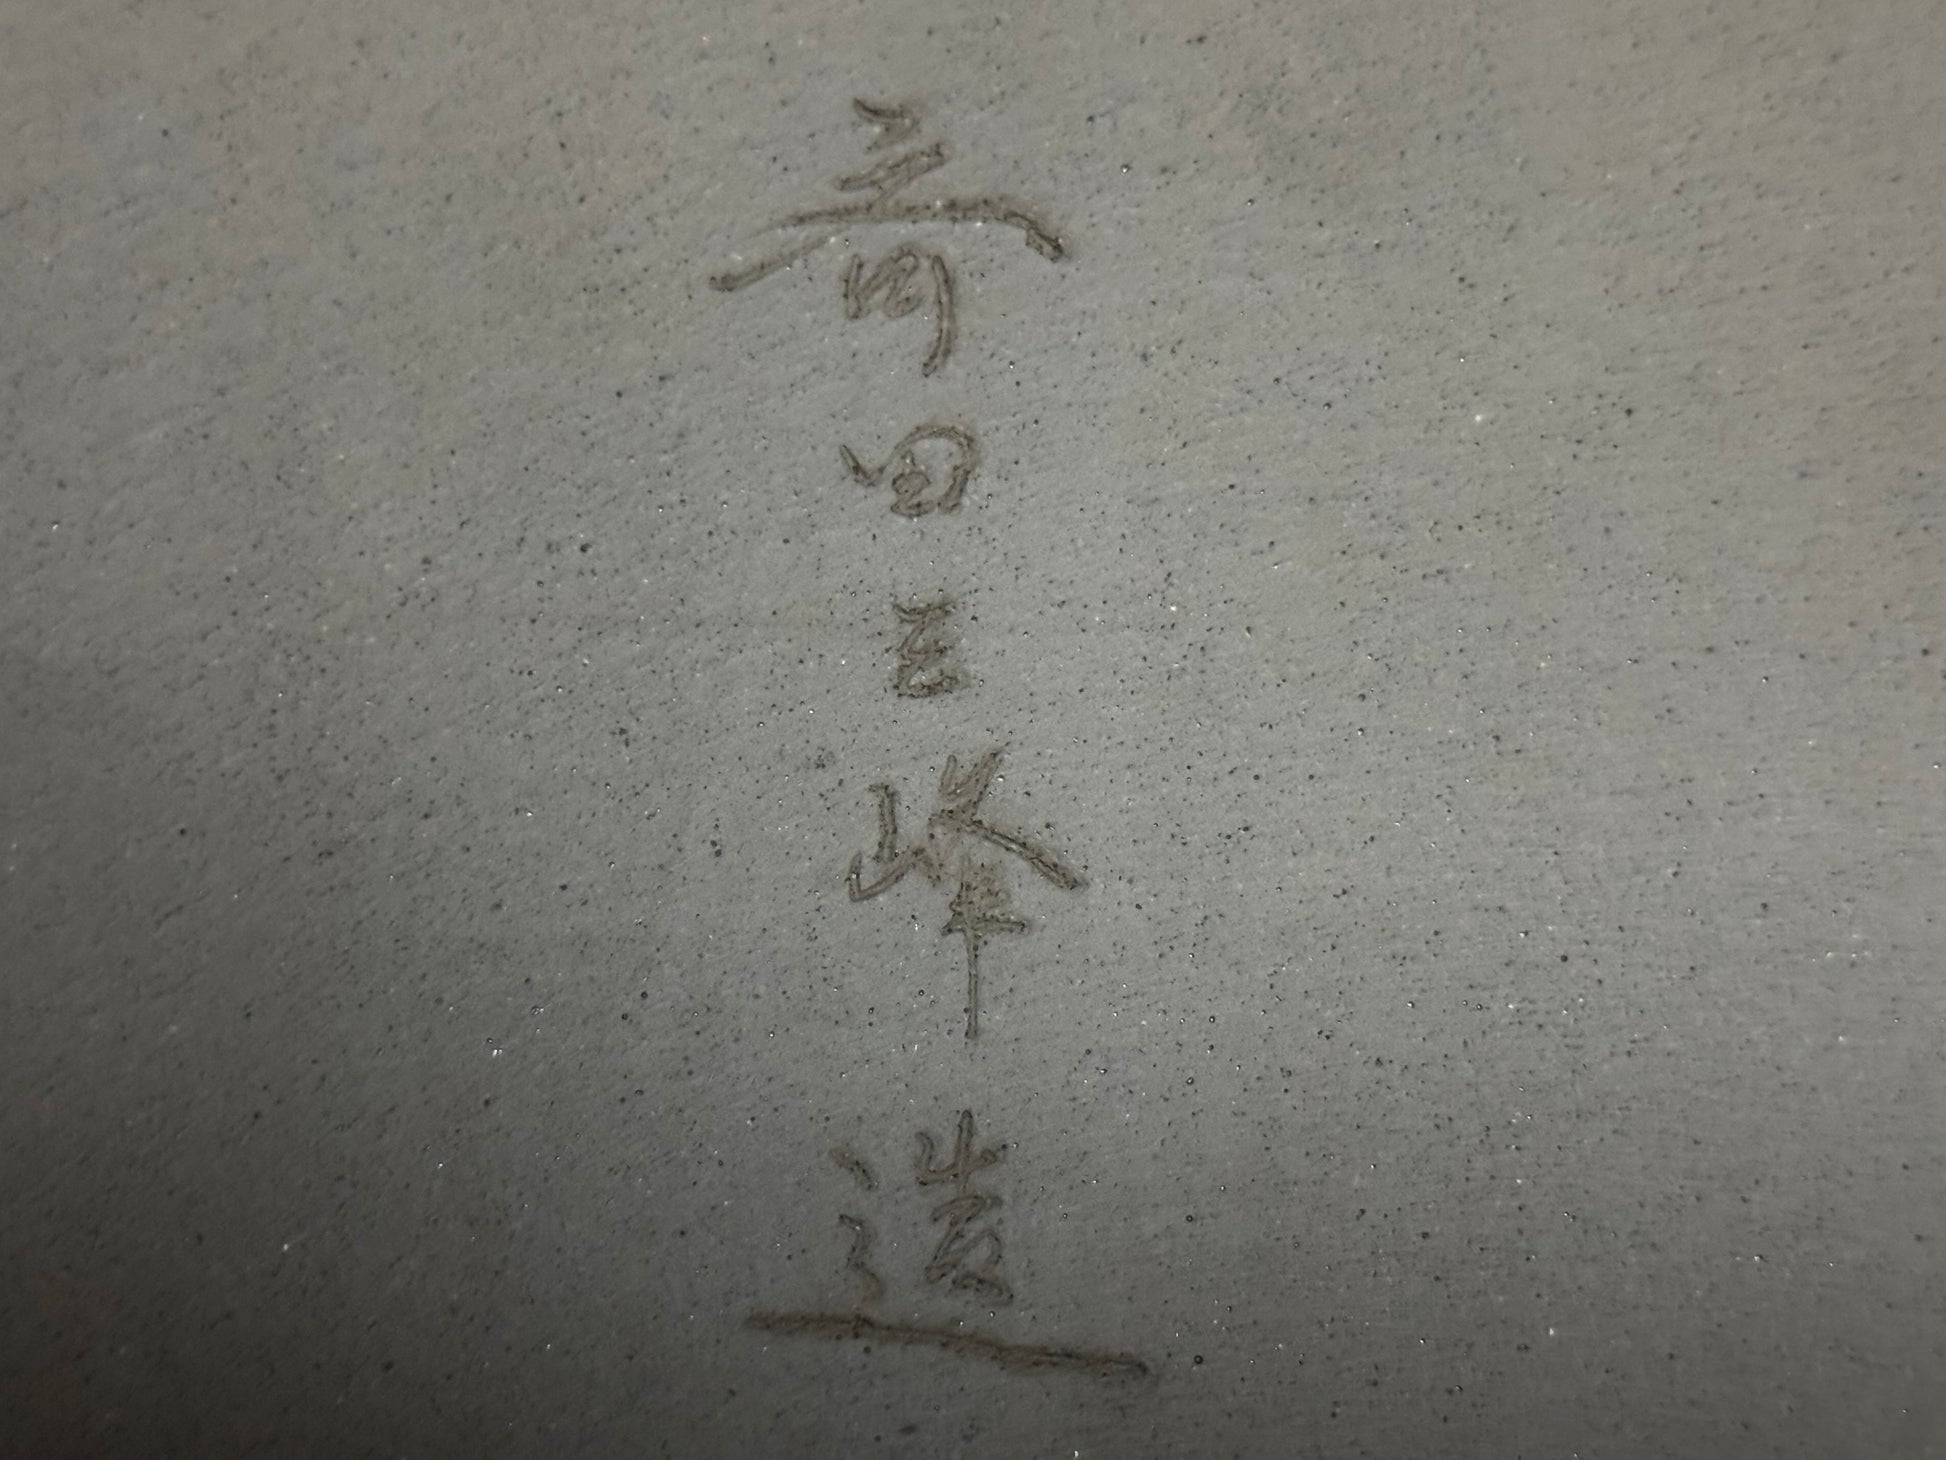 奇田玉峰造